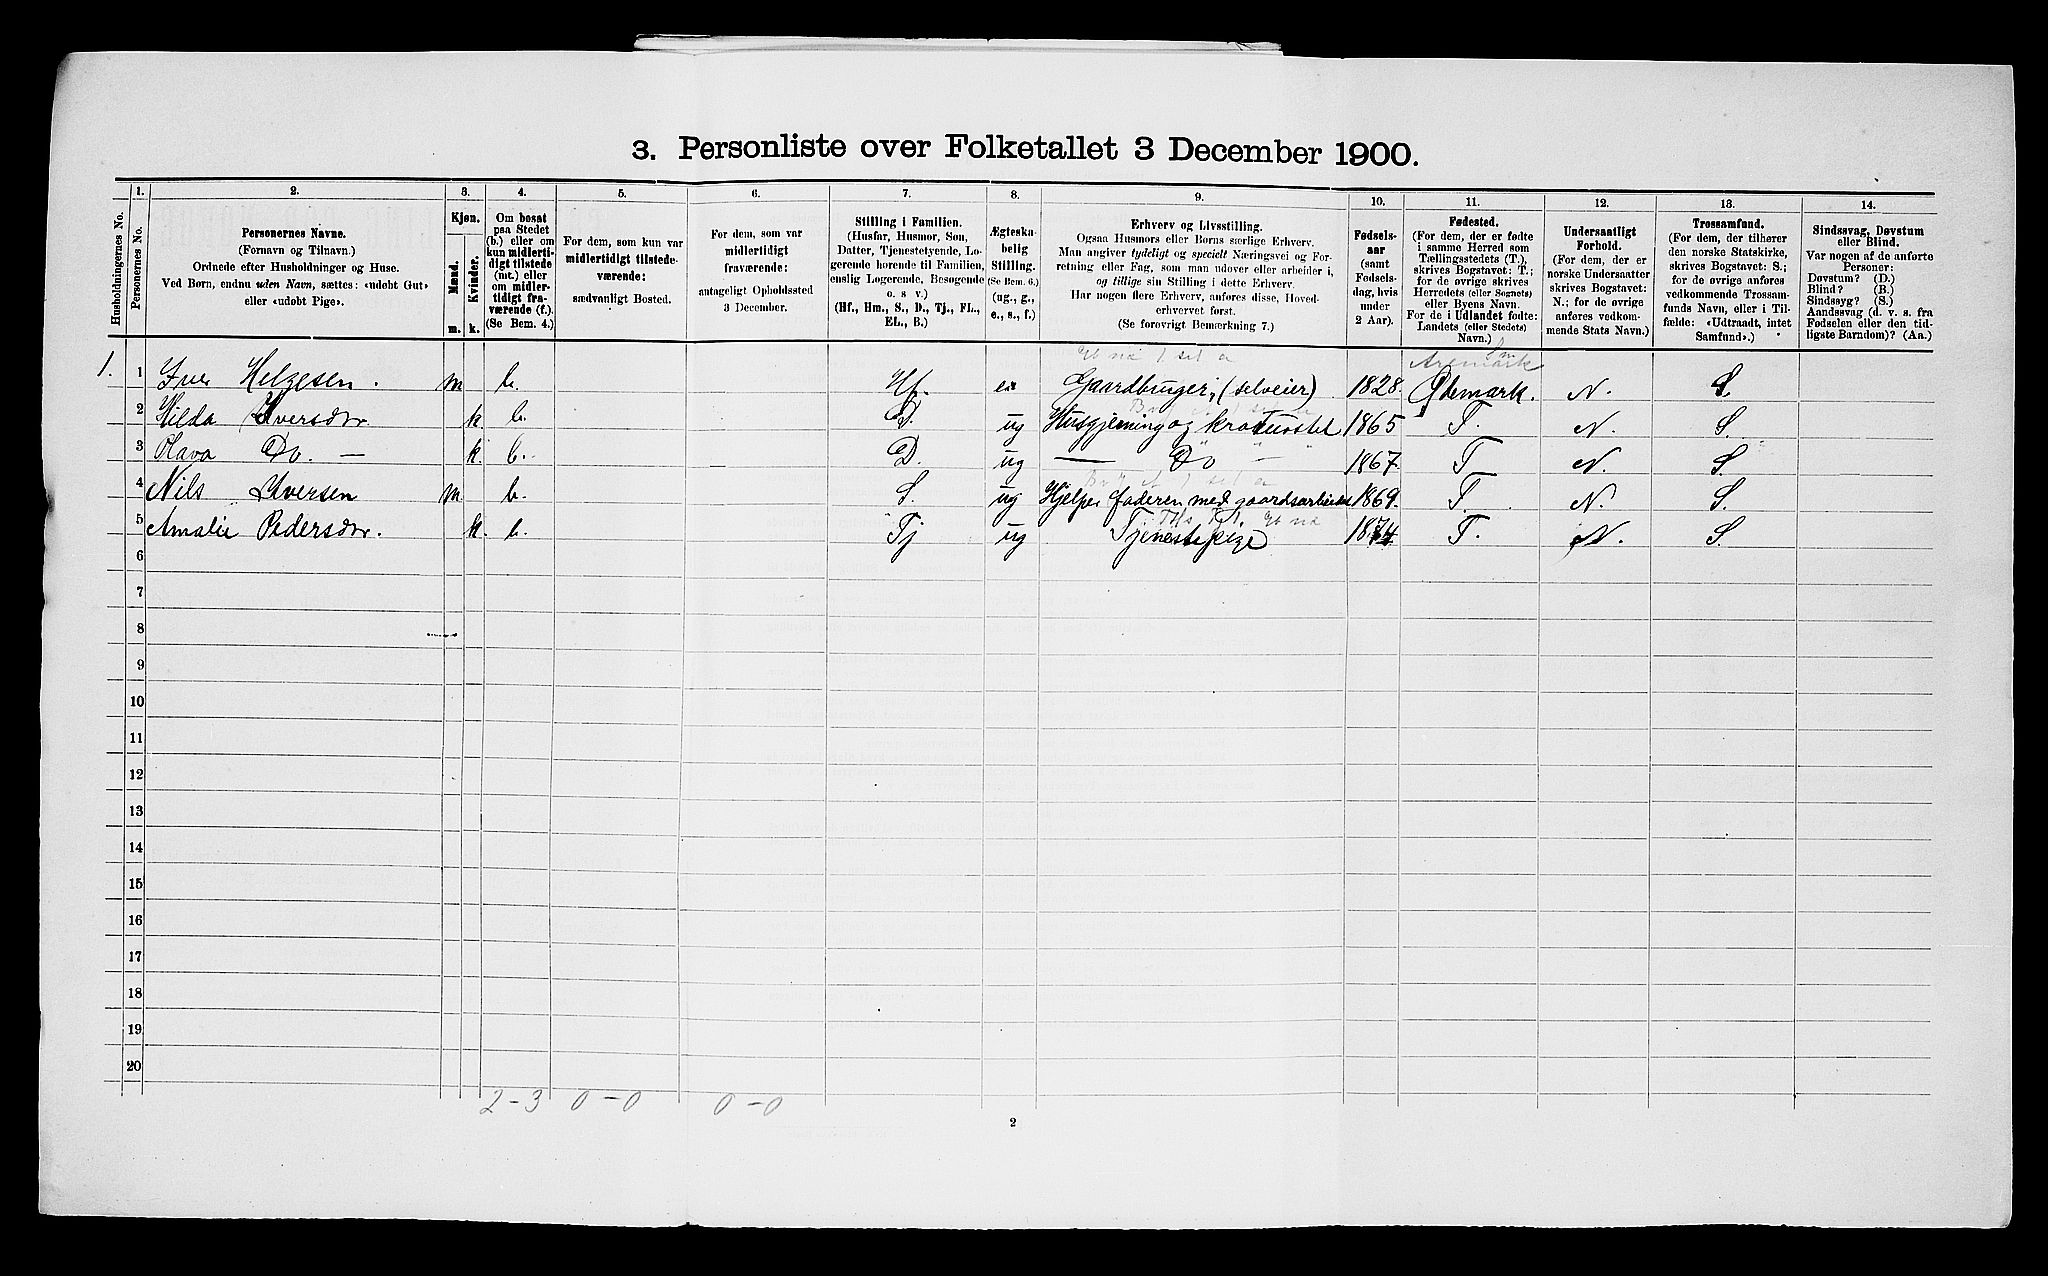 3. Personliste over Folketallet 3 December 1900.
Husholdningernes No.
1. Personernes No.
2. Personernes Navne. (Fornavn og Tilnavn.) Ordnede efter Husholdninger og Huse. Ved Børn, endnu uden Navn, sættes: «udøbt Gut» eller «udøbt Pige».
3. Kjøn. Mænd. m. Kvinder. k.
4. Om bosat paa Stedet (b.) eller om kun midlertidigt tilstede (mt.) eller om midlertidigt fraværende (f.). (Se Bem. 4.)
5. For dem, som kun var midlertidigt tilstedeværende: sædvanligt Bosted.
6. For dem, som var midlertidigt fraværende: antageligt Opholdssted 3 December.
7. Stilling i Familien. (Husfar, Husmor, Søn, Datter, Tjenestelyende, Logerende hørende til Familien, enslig Logerende, Besøgende o. s v.) (Hf., Hm., S., D., Tj., FL., EL., B.)
8. Ægteskabelig Stilling. (Se Bem. 6.) (ug., g., e., s., f.)
9. Erhverv og Livsstilling. Ogsaa Husmors eller Børns særlige Erhverv. Man angiver tydeligt og specielt Næringsvei og Forretning eller Fag, som man udover eller arbeider i, og tillige sin Stilling i dette Erhverv. Har nogen flere Erhverv, anføres disse, Hovederhvervet først. (Se forøvrigt Bemærkning 7.)
10. Fødselsaar (samt Fødselsdag, hvis under 2 Aar).
11. Fødested. (For dem, der er fødte i samme Herred som Tællingsstedets (T.), skrives Bogstavet: T.; for de øvrige skrives Herredets (eller Sognets) eller Byens Navn. For de i Udlandet fødte: Landets (eller Stedets) Navn.)
12. Undersaatligt Forhold. (For dem, der er norske Undersaatter skrives Bogstavet: N.; for de øvrige anføres vedkommende Stats Navn.)
13. Trossamfund. (For dem, der tilhører den norske Statskirke, skrives Bogstavet: S.; for de øvrige anføres vedkommende Trossamfunds Navn, eller i Tilfælde: «Udtraadt, intet Samfund».)
14. Sindssvag, Døvstum eller Blind. Var nogen af de anførte Personer: Døvstum? (D.) Blind? (B.) Sindssyg? (S.) Aandssvag (d. v. s. fra Fødselen eller den tidligste Barndom)? (Aa.)
Aremark
1. 1 Iver Helgesen. m b. Hf. e Gaardbruger, (selveier) 1828. Øtemark. N. S.
2 Hilda Iversdtr k b. D. ug Husgjerning og kreaturstel 1865 T. N. S.
3 Hava Do. — k. b. D. ug — Do — " 1867. T N. S.
4 Nils Iversen m. b. S. ug Hjelper faderen med gaardsarbeidet 1869. T. N. S.
5 Amalie Pedersdtr. k. b. Tj ug Tjenestepige 1874 T. N. S.
6
7
8
9
10
11
12
13
14
15
16
17
18
19
20
2 – 3 0 – 0 0 – 0
2